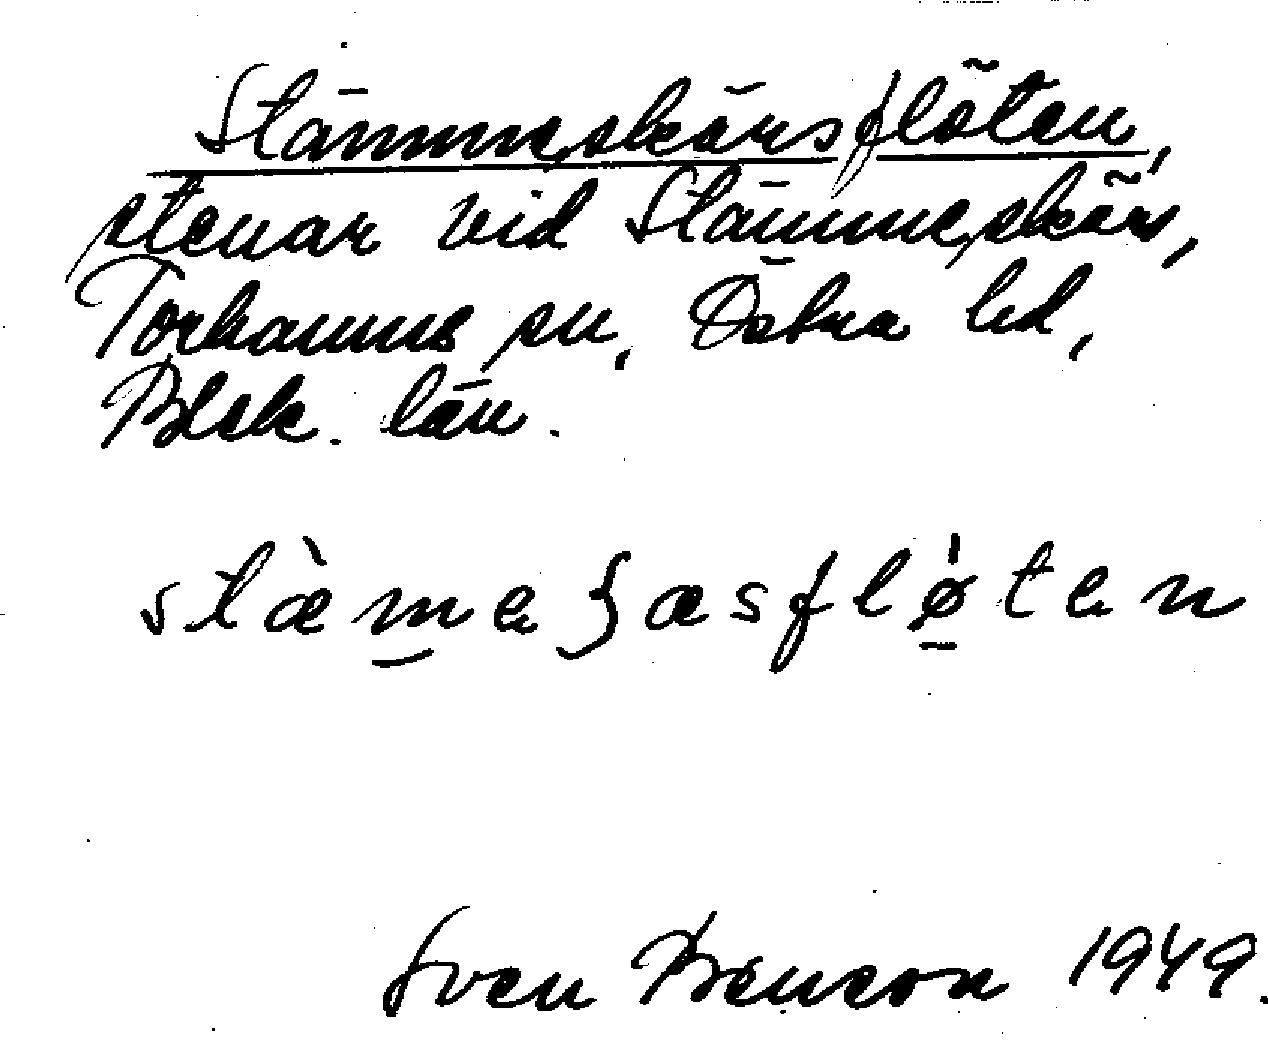 Stämmeskärsflöten,
stenar vid Stämmeskärs,
Torhamns sn, Östra hd,
Blek. län.
stæ̀meʒasflø̍ten
Sven Benson 1949.